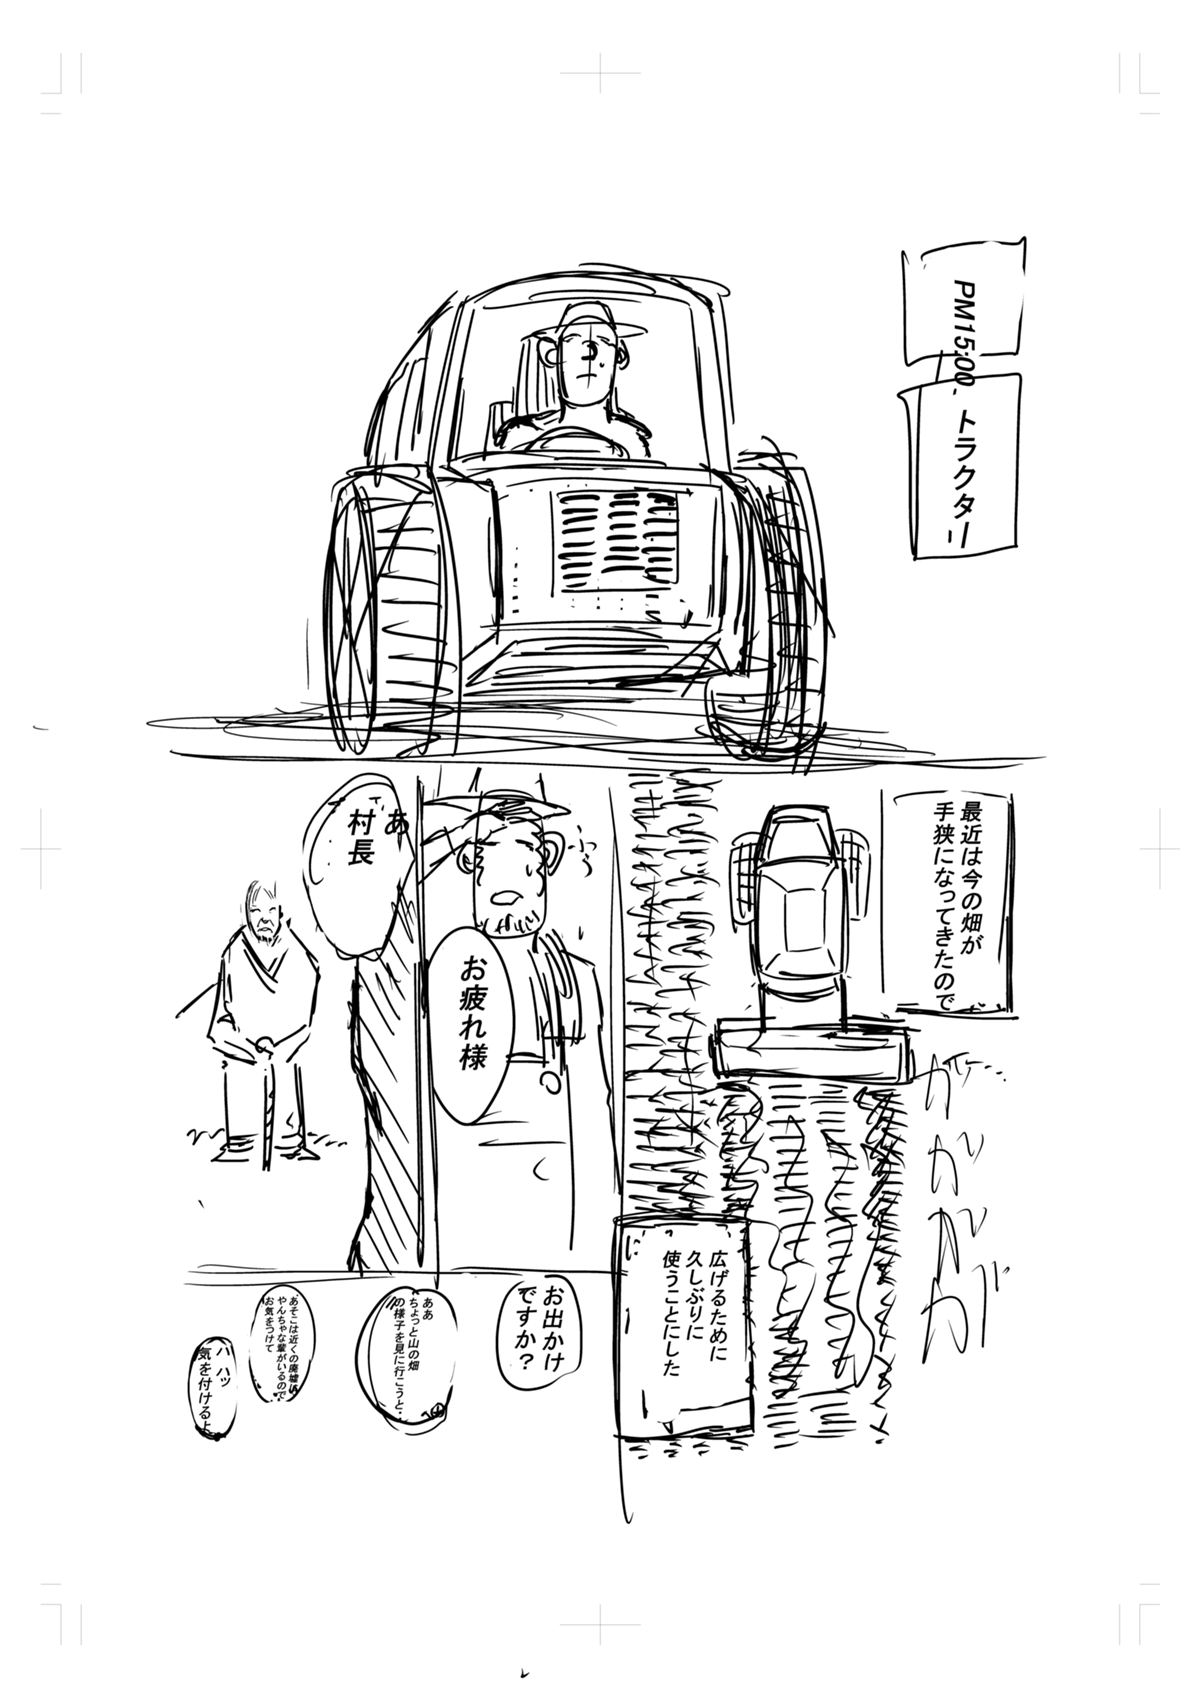 PM15:00. トラクター
最近は今の畑が
手狭になってきたので
ガガガガ
広げるために
久しぶりに
使うことにした
ふぅ
お疲れ様
あ
村長
お出かけ
ですか？
ああ
ちょっと山の畑
の様子を見に行こうと
あそこは近くの廃墟に
やんちゃな輩がいるので
お気をつけて
ハハッ
気を付けるよ